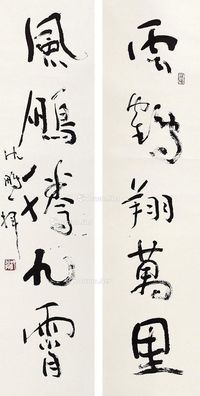 雲鶴翔萬里
風鵬九霄
沈鵬